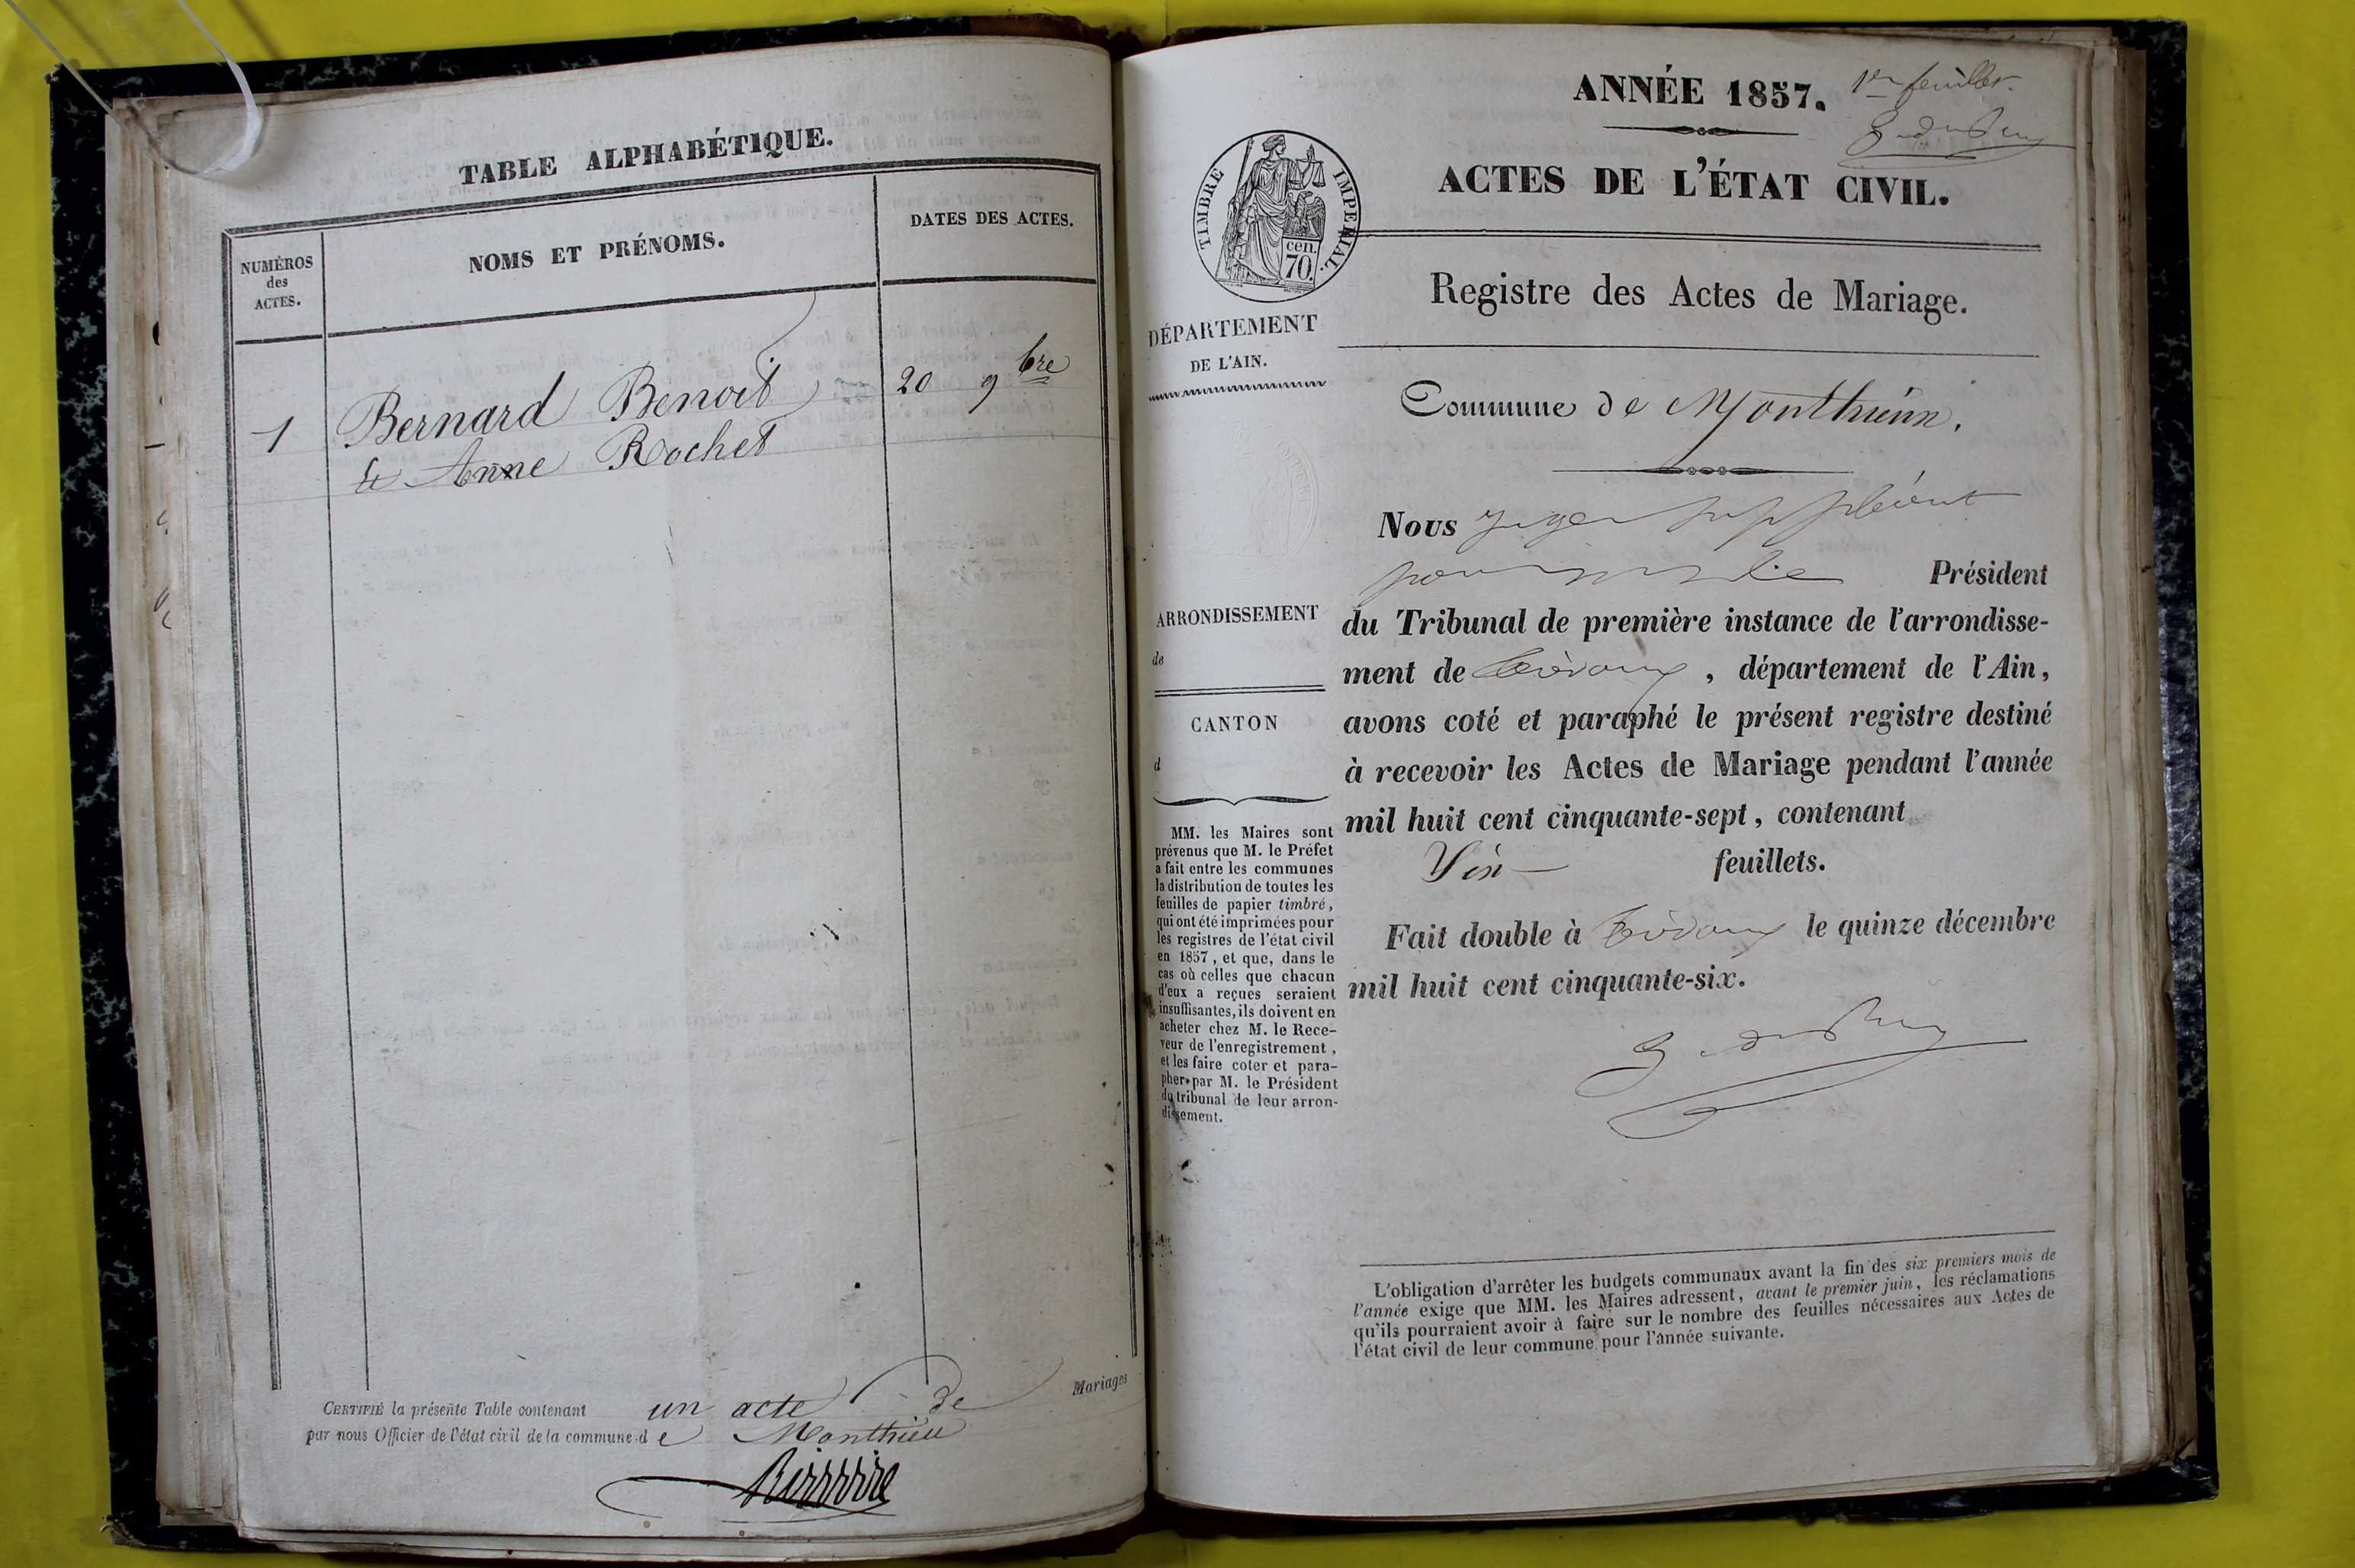 TABLE ALPHABÉTIQUE.
NUMÉROS
des
ACTES.
NOMS ET PRÉNOMS.
DATES DES ACTES.
1
Bernard Benoit
20 9bre
et Anne Rochet
Mariages
CERTIFIÉ la présente Table contenant un acte de
par nous Officier de l'état civil de la commune de Monthieu
ANNÉE 1857.
1er feuillet
ACTES DE L'ÉTAT CIVIL.
TIMBRE IMPERIAL.
cen.
70.
Registre des Actes de Mariage.
DÉPARTEMENT
DE L'AIN.
Commune de Monthieux.
Nous juge suppléant
pour le Président
ARRONDISSEMENT
de
CANTON
d
du Tribunal de première instance de l'arrondisse-
ment de Trévoux, département de l'Ain,
avons coté et paraphé le présent registre destiné
à recevoir les Actes de Mariage pendant l'année
mil huit cent cinquante-sept, contenant
Six feuillets.
Fait double à Trévoux le quinze décembre
mil huit cent cinquante-six.
MM. les Maires sont
prévenus que M. le Préfet
a fait entre les communes
la distribution de toutes les
feuilles de papier timbré,
qui ont été imprimées pour
les registres de l'état civil
en 1857, et que, dans le
cas où celles que chacun
d'eux a reçues seraient
insuffisantes, ils doivent en
acheter chez M. le Rece-
veur de l'enregistrement,
et les faire coter et para-
pher par M. le Président
du tribunal de leur arron-
dissement.
L'obligation d'arrêter les budgets communaux avant la fin des six premiers mois de
l'année exige que MM. les Maires adressent, avant le premier juin, les réclamations
qu'ils pourraient avoir à faire sur le nombre des feuilles nécessaires aux Actes de
l'état civil de leur commune pour l'année suivante.